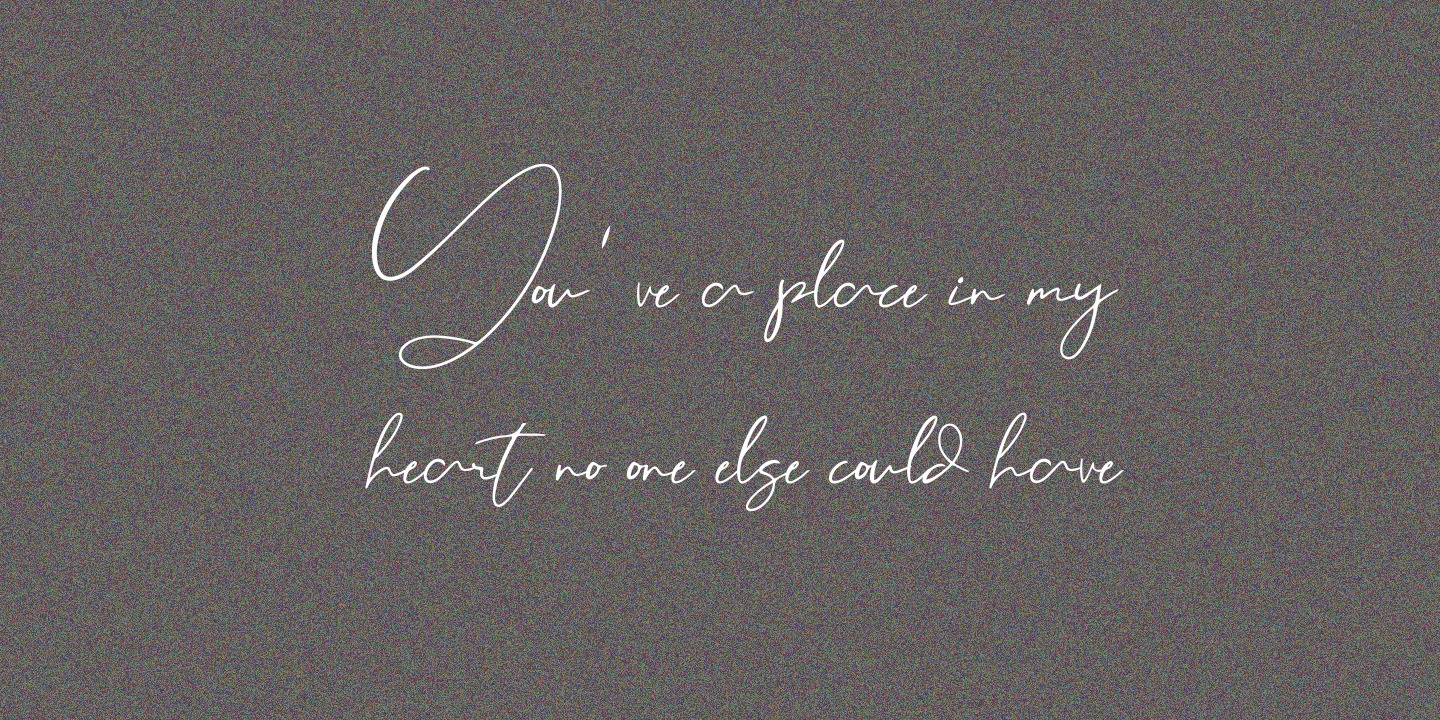 You've a place in my
heart no one else could have